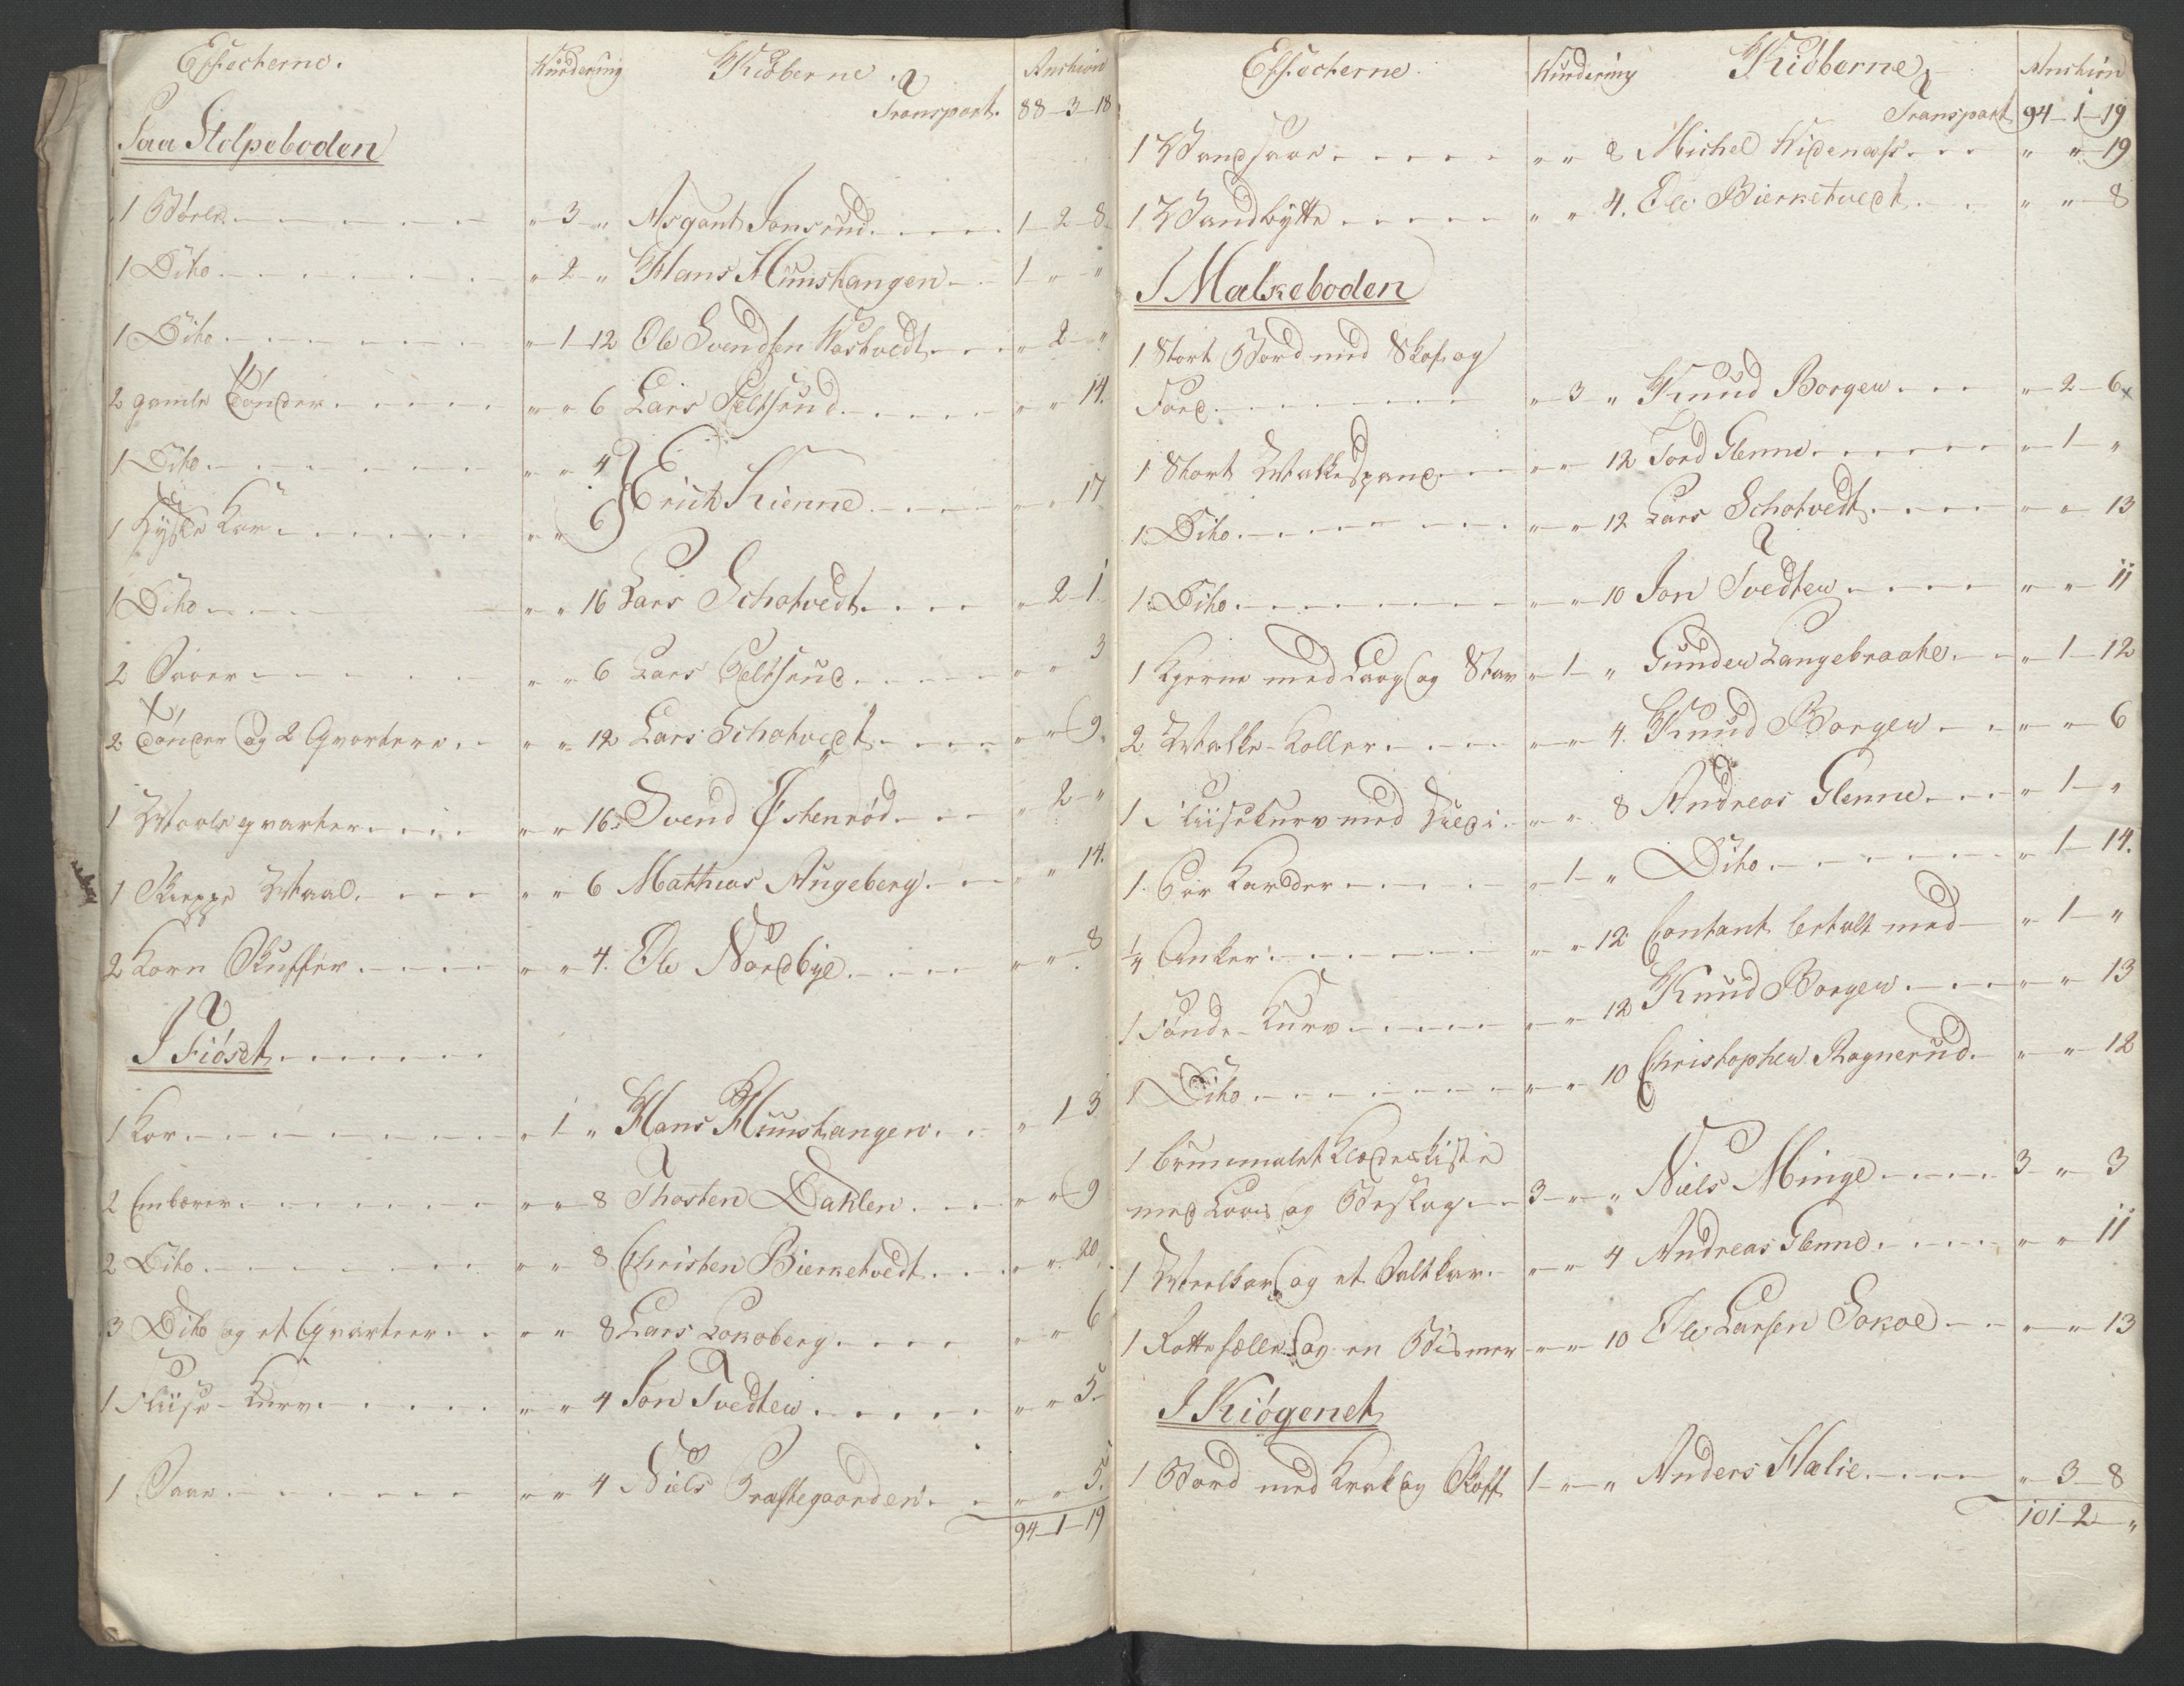 Effecterne. Wurdering Kiöberne Auction
Transport. 88-3-18
Paa Stolpeboden
1 - - - - „ 3 „ Asgout Jonsrud. 1-2-8
1 Dito - - - - „ 2 „ Hans Munshangen 1 „ „
1 Dito - - - - „ 1-12 Ole Svendsen Hostvedt „ 2 „
2 gamle Tönder - - - - „ „ 6 Lars Peltsrud „ „ 14.
1 Dito - - - - „ „ 4
Erich Kienne „ „ 17
1 Kar - - - - „ „ 6
1 Dito - - - „ „ 16 Lars Schotvedt „ 2-1
2 Saaer - - - - „ „ 6 Lars Peltsrud „ „ 3
2 Tönder og 2 Qvartere „ „ 12 Lars Schotvedt „ „ 9.
1 Maaleqvarter „ „ 16 Svend Östenröd „ 2 „
1 Skieppe Maal „ „ 6 Mathias Augeberg „ „ 14.
2 Korn Skuffer „ „ 4. Ole Nordbye „ „ 8
I Fiöset
1 Kar „ 1 „ Hans Hunshangen „ 1-3
2 Embærer „ „ 8 Thosten Daklen „ „ 9
2 Dito „ „ 8 Christen Bierketvedt „ „ 20.
3 Dito og et Qvarteer „ „ 8 Lars Lokoberg „ „ 6
1 Fliise-Kurv „ „ 4 Jon Tvedten „ „ 5.
1 Saae „ „ 4 Niels Præstegaarden „ „ 5.
94-1-19
Effecterne. Wurdering Kiöberne Auction
Transport 94-1-19
1 Vandsaae „ „ 8 Michel Hidenæss „ „ 19
1 Vandbytte „ „ 4. Ole Bierketvedt „ „ 8
I Malkeboden
1 Stort Bord med Skab og
Foed „ 3 „ Knud Borgen „ 2-6
1 Stort Malkespand „ „ 12 Tord Glenne „ 1 „
1 Dito „ „ 12 Lars Schotvedt „ „ 13
1 Dito „ „ 10 Jon Tvedten „ „ 11
1 Kjerne med Laag og Stav „ 1 „ Gunder Langebraate „ 1-12
2 Malke-Koller „ „ 4. Knud Borgen „ „ 6
1 Fliisekurv med i „ „ 8 Andreas Glenne „ 1 „
1 Par Karder „ 1 „ Dito „ 1-14.
1/4 Anker „ „ 12 Contant betalt med „ 1 „
1 Haand-Kurv „ „ 12 Knud Borgen „ „ 13
1 Dito „ „ 10 Christopher Ragnerud „ „ 12
1 brunmalet Klædeskiste
med Laas og Beslag 3 „ „ Niels Minge 3 „ 3
1 Meelkar og et Saltkar „ „ 4 Andreas Glenne „ „ 11
1 Rottefælle og en Bismer „ „ 10 Ole Larsen Sokol „ „ 13
I Kiögenet
1 Bord med Krak og Skuff 1 „ „ Anders Hælie „ 3-8
101-2 „